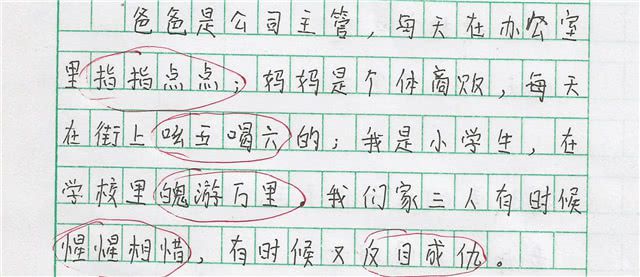 爸爸是公司主管，每天在办公室
里指指点点；妈妈是个体商贩，每天
在街上吆五喝六的；我是小学生，在
学校里魂游万里。我们家三人有时候
惺惺相惜，有时候又反目成仇。